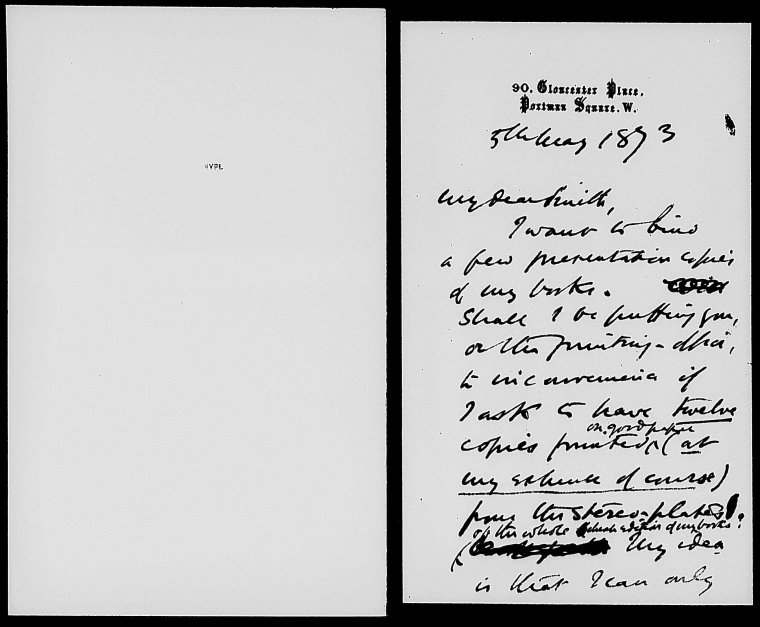 NYPL
90, Gloucester Place,
Portman Square. W.
5th May 1873
My dear Smith,
I want to bind
a few presentation copies
of my books.
Shall I be putting you,
or the printing-office,
to inconvenience if
I ask to have twelve
on good paper
copies printed (at
my expense of course)
from the stereo-plates
of the whole cheap edition of my books?
My idea
is that I can only